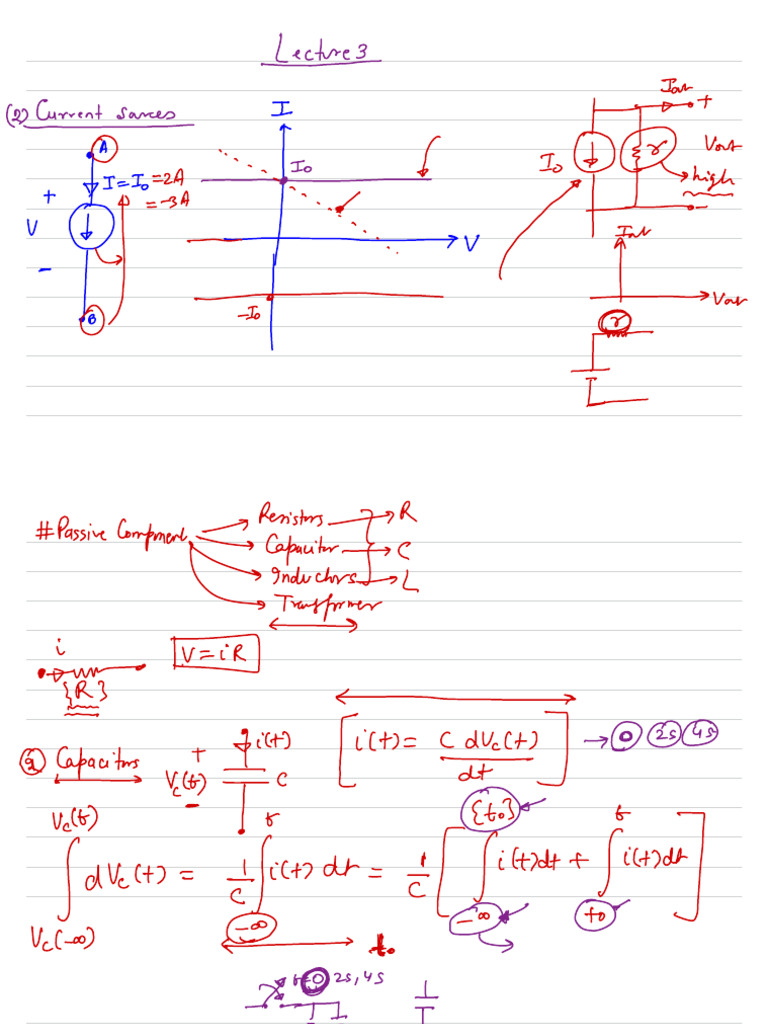 Lecture 3
(2) Current sources
A
+
V
-
B
I = I₀ = 2A
= -3A
I
I₀
V
-I₀
Iout
+
I₀
r
Vout
high
-
Iout
Vout
r
# Passive Component
Resistors → R
Capacitor → C
Inductors → L
Transformer
i
V = iR
{R}
(2) Capacitors
+
Vc(t)
-
i(t)
C
[ i(t) = C dVc(t)/dt ] → 0 2s 4s
∫_{Vc(-∞)}^{Vc(t)} dVc(t) = 1/C ∫_{-∞}^{t} i(t) dt = 1/C [ ∫_{-∞}^{{t₀}} i(t)dt + ∫_{t₀}^{t} i(t)dt ]
t₀
t=0 2s, 4s